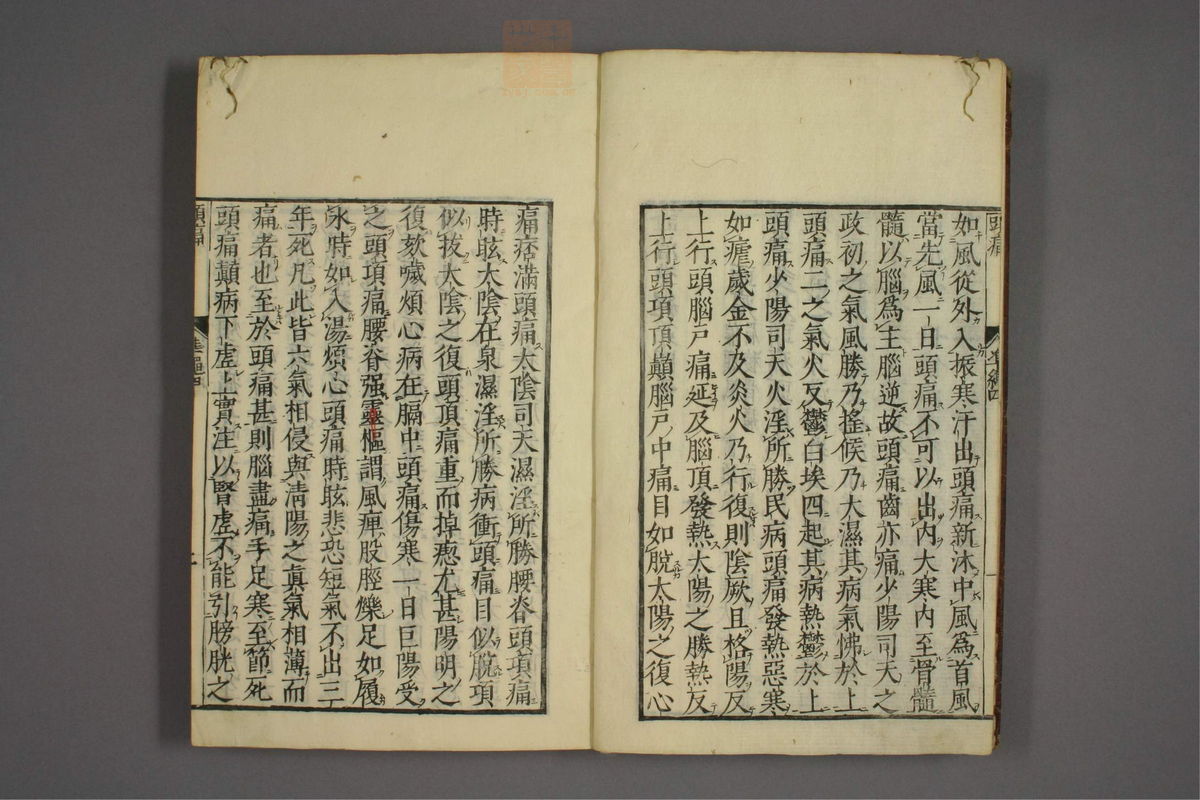 頭痛
如風從外入振寒汗出頭痛新沐中風爲首風
當先風一日頭痛不可以出內大寒內至骨髓
髓以腦爲主腦逆故頭痛齒亦痛少陽司天之
政初之氣風勝乃搖候乃大濕其病氣怫於上
頭痛二之氣火反鬱白埃四起其病熱鬱於上
頭痛少陽司天火淫所勝民病頭痛發熱惡寒
如瘧歲金不及炎火乃行復則陰厥且格陽反
上行頭腦戸痛延及腦頂發熱太陽之勝熱反
上行頭項頂巓腦戸中痛目如脫太陽之復心
痛痞滿頭痛太陰司天濕淫所勝腰脊頭項痛
時眩太陰在泉濕淫所勝病衝頭痛目似脫項
似拔太陰之復頭頂痛重而掉瘛尤甚陽明之
復欬噦煩心病在膈中頭痛傷寒一日巨陽受
之頭項痛腰脊强靈樞謂風痺股脛爍足如履
氷時如入湯煩心頭痛時眩悲恐短氣不出三
年死凡此皆六氣相侵與淸陽之眞氣相薄而
痛者也至於頭痛甚則腦盡痛手足寒至節死
頭痛顛病下虛上實注以腎虛不能引膀胱之
頭痛